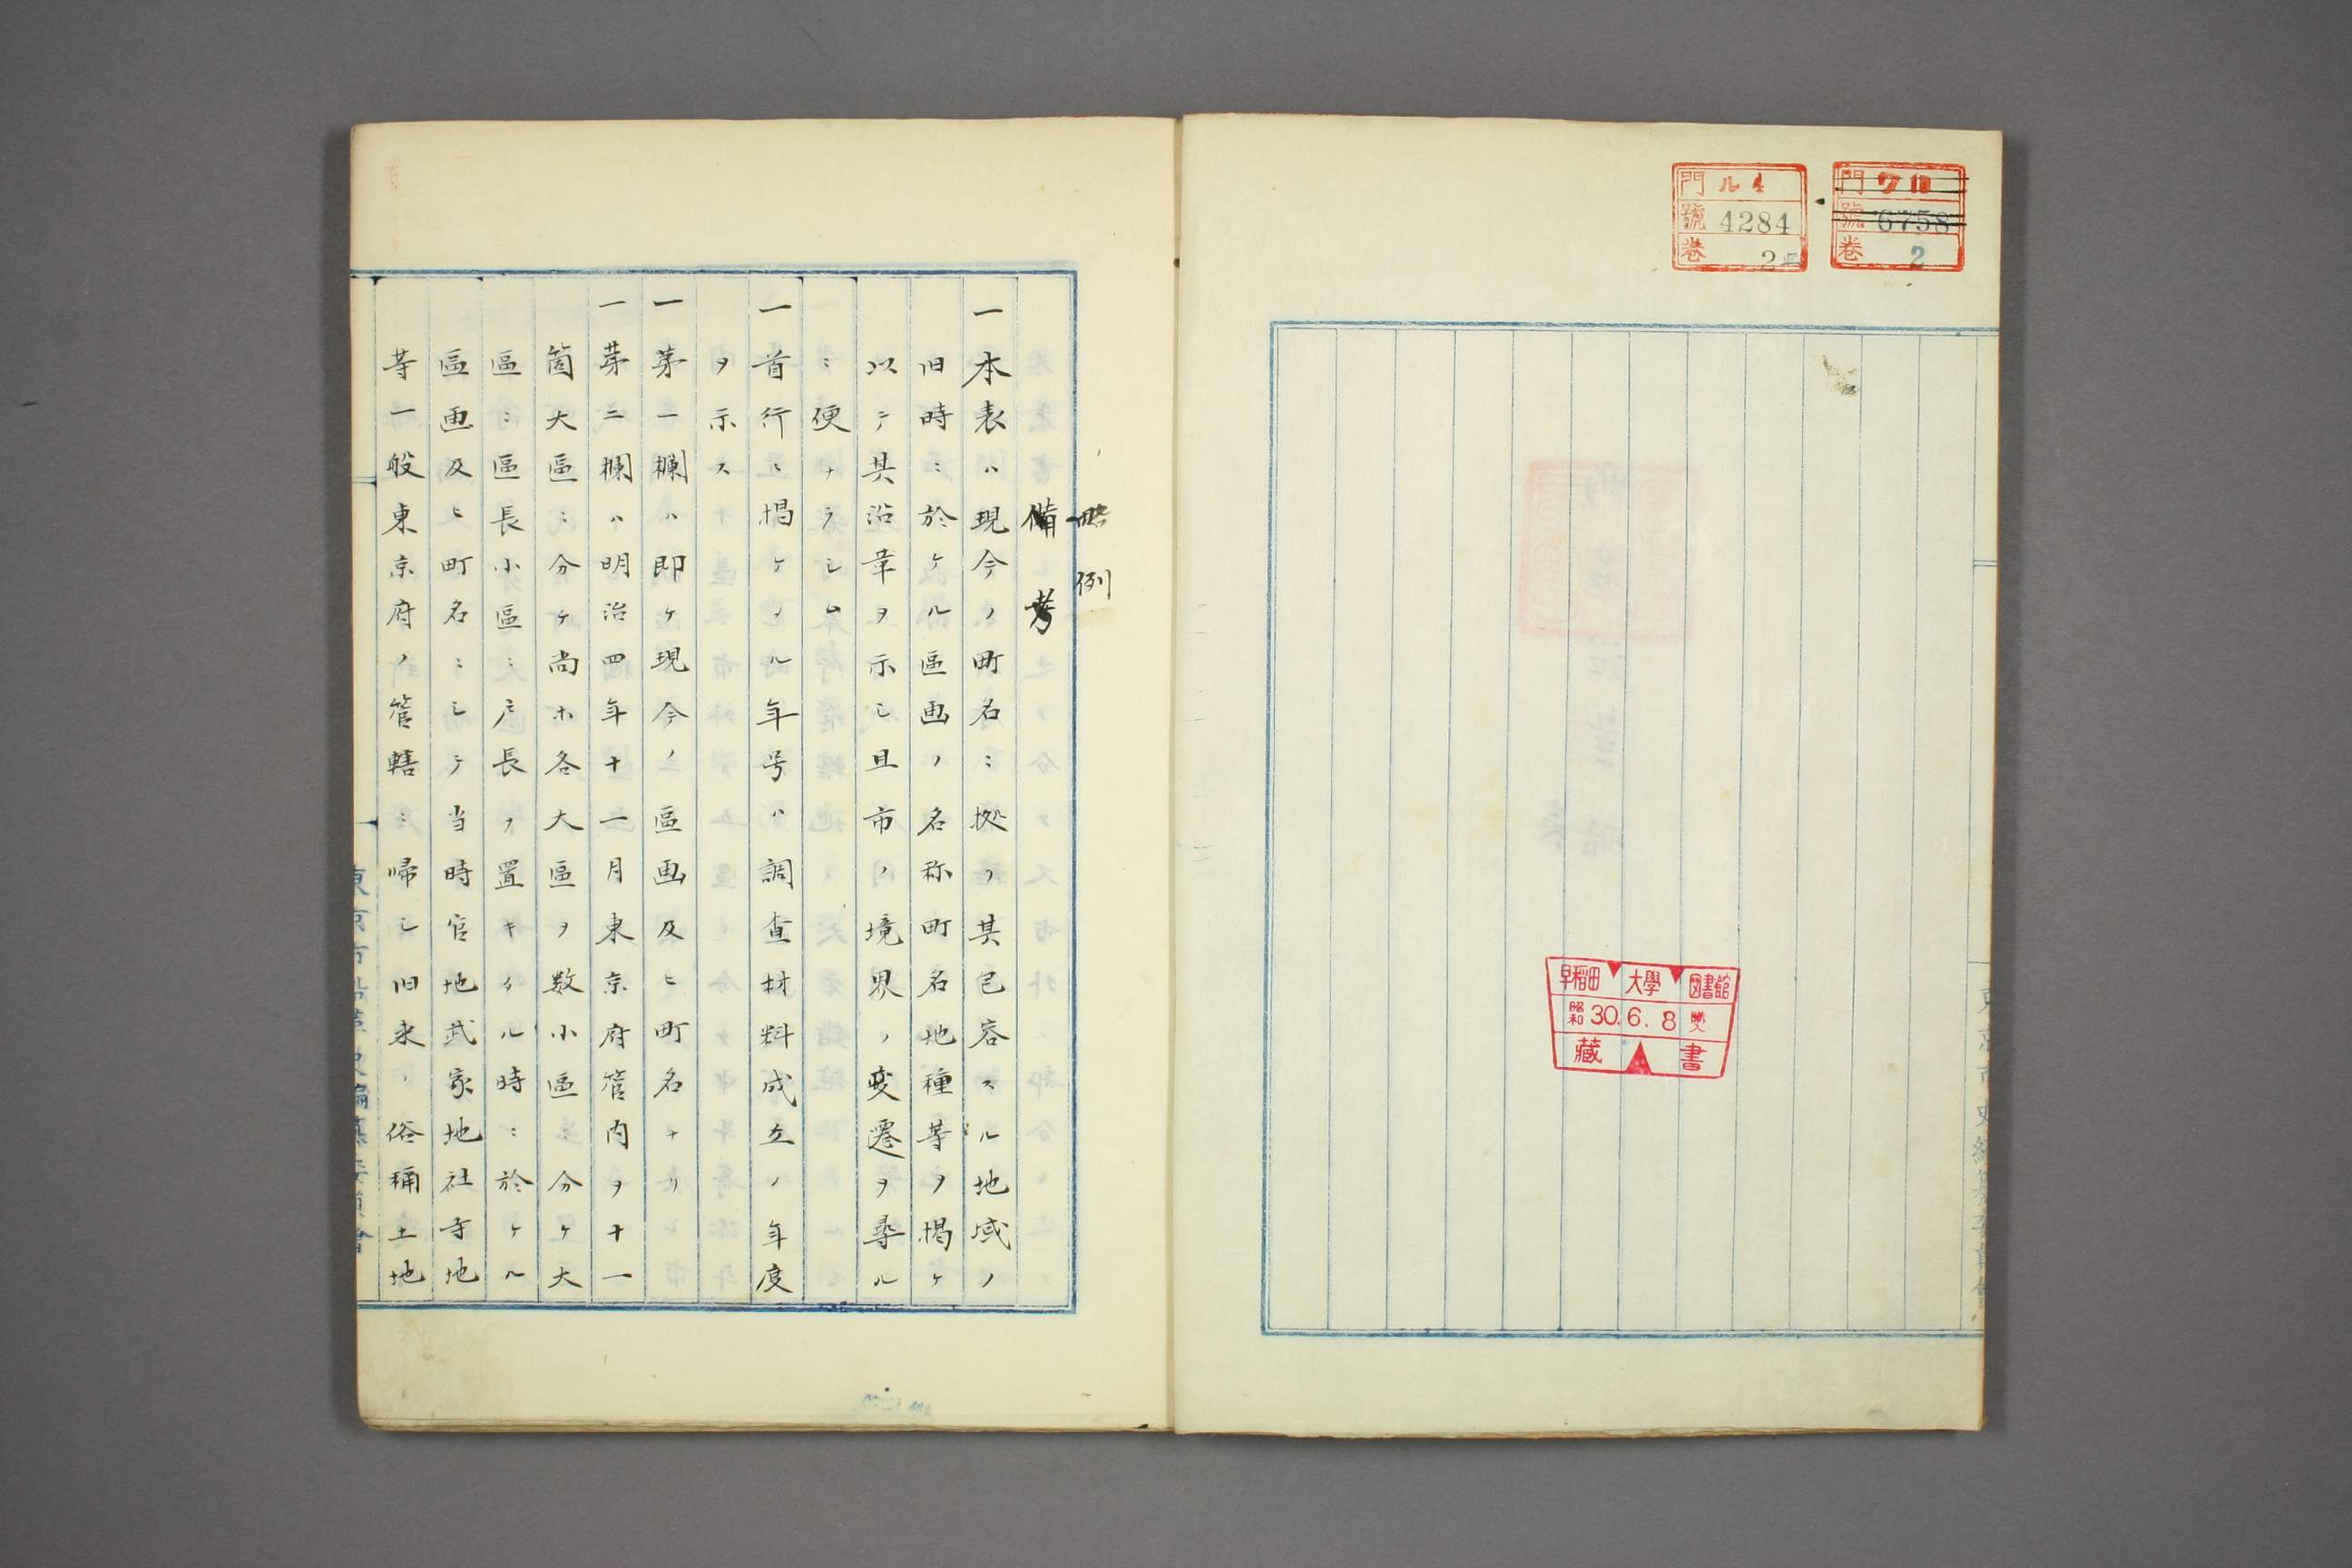 門 ワ四
號 6758
卷 2
門 ル4
號 4284
卷 2
早稲田大學図書館
昭和30.6.8
藏書
略例
備考
一本表ハ現今ノ町名ニ拠リ其包容スル地域ノ
旧時ニ於ケル區画ノ名称町名地種等ヲ掲ケ
以テ其沿革ヲ示シ且市ノ境界ノ変遷ヲ尋ル
ニ便ナラシム
一首行ニ掲ケタル年号ハ調査材料成立ノ年度
ヲ示ス
一第一欄ハ即ケ現今ノ區画及ヒ町名ナリ
一第二欄ハ明治四年十一月東京府管内ヲ十一
箇大區ニ分ケ尚ホ各大區ヲ数小區ニ分ケ大
區ニ區長小區ニ戸長ヲ置キタル時ニ於ケル
區画及ヒ町名ニシテ当時官地武家地社寺地
等一般東京府ノ管轄ニ帰シ旧来ノ俗稱土地
東京市史編纂委員會